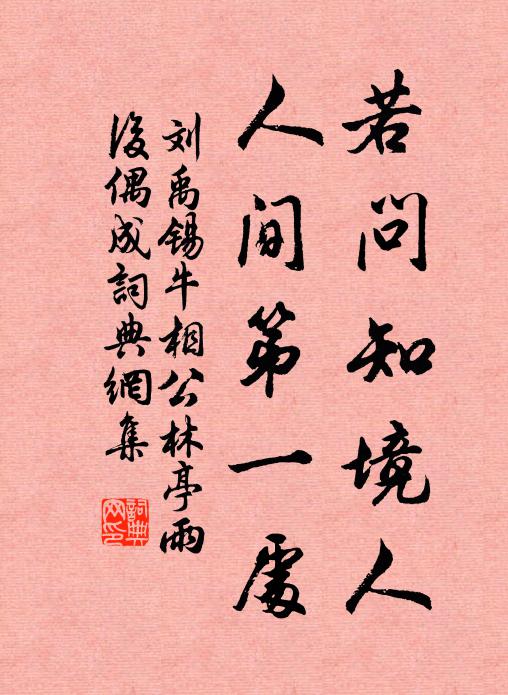 若问知境人
人间第一處
刘禹锡牛相公林亭雨
後偶成詞典網集
詞典网印